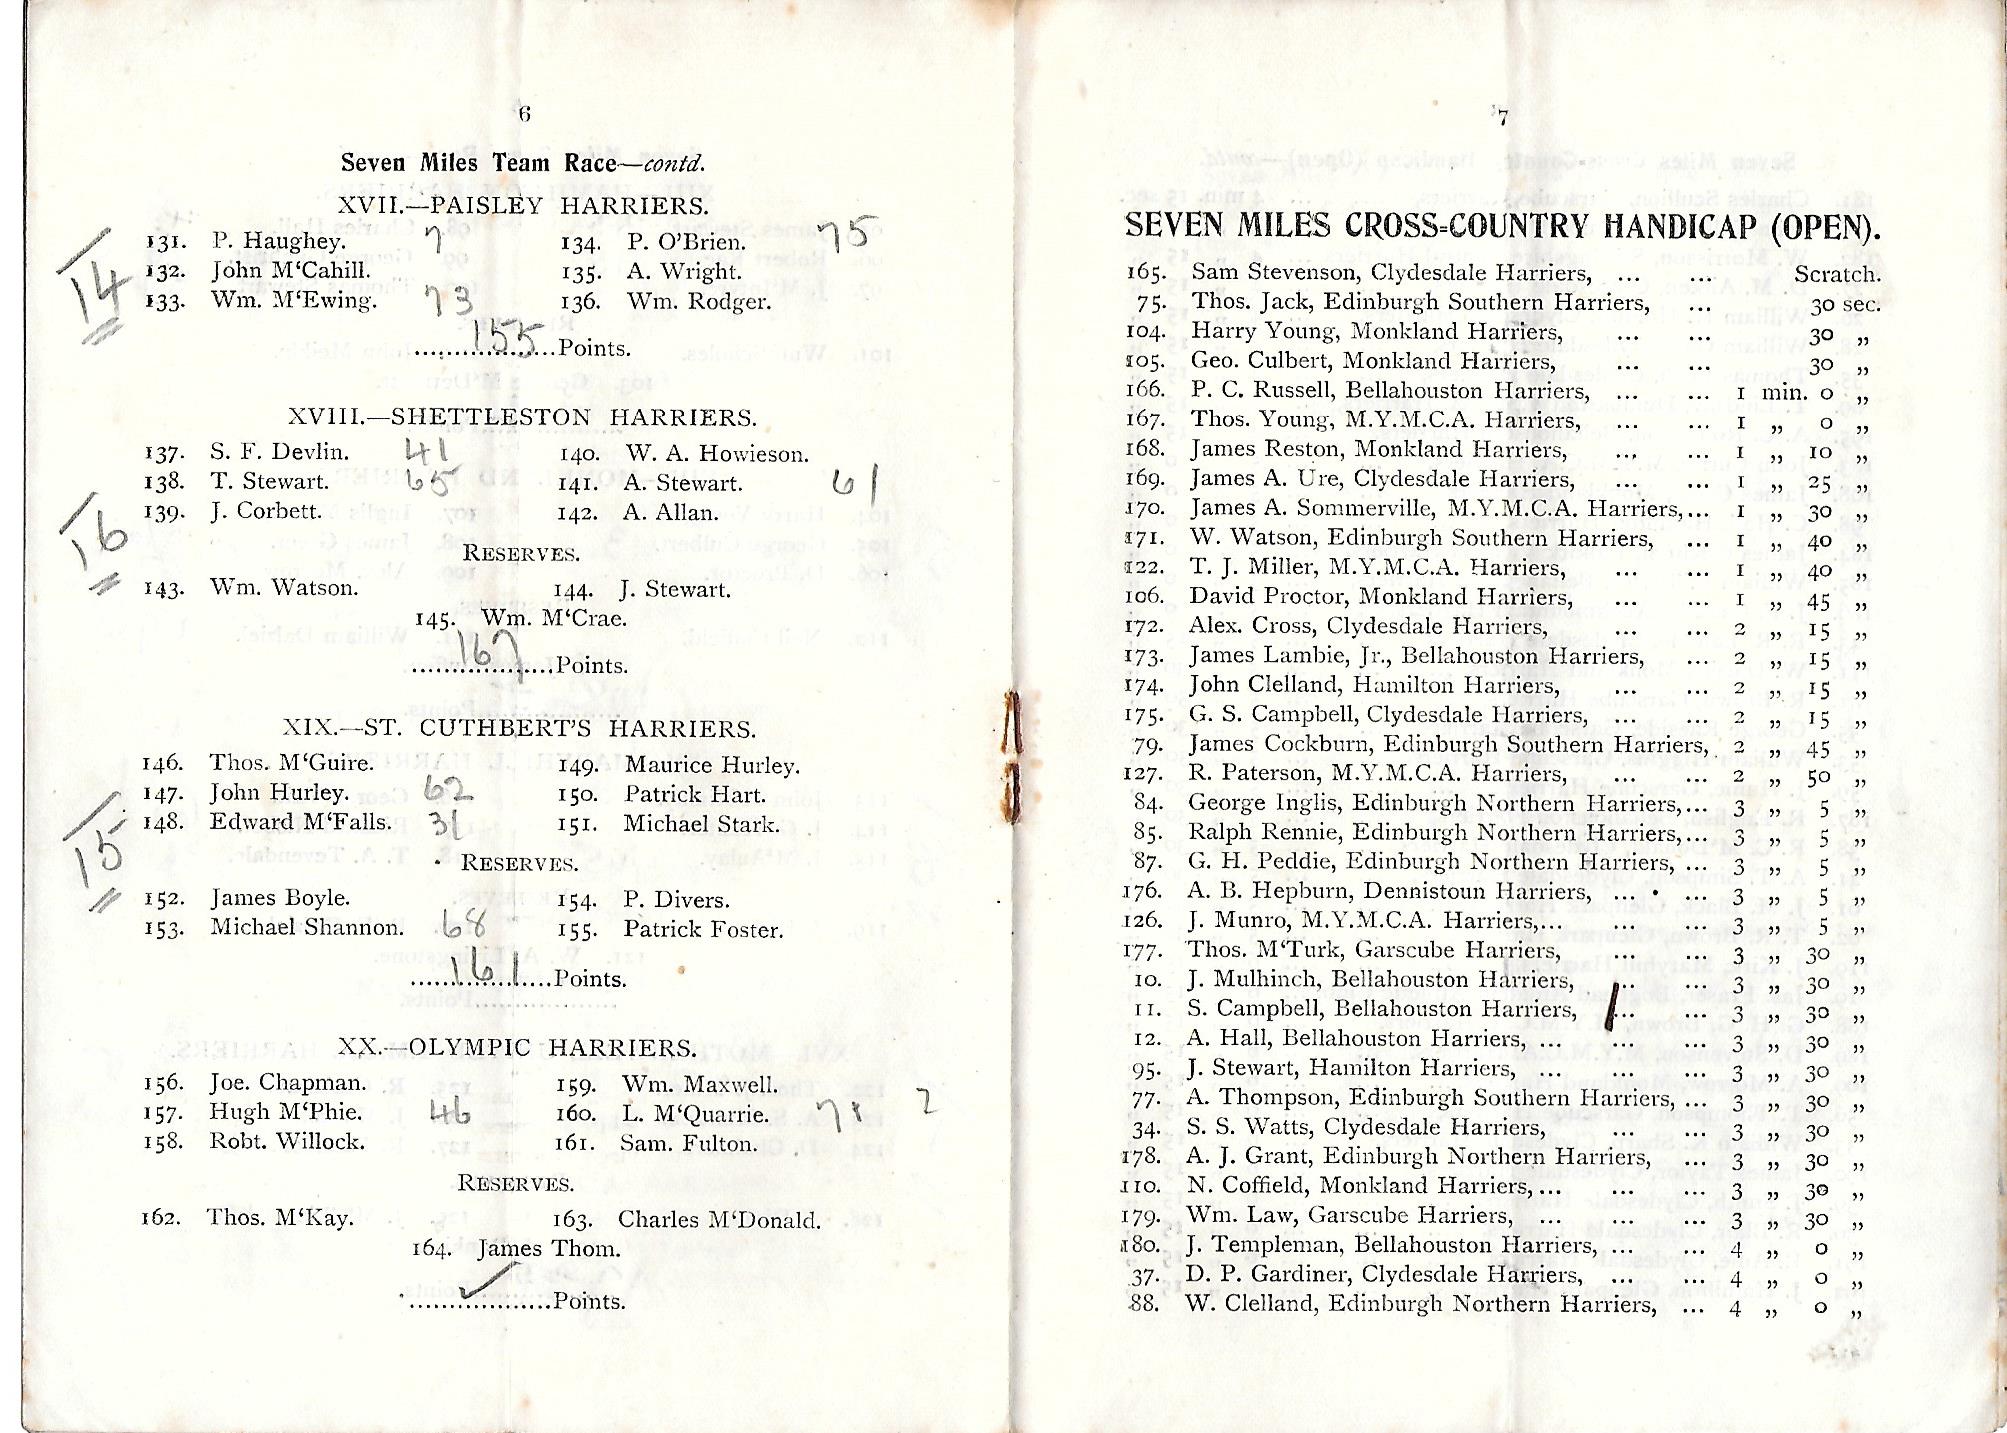 6
Seven Miles Team Race—contd.
XVII.—PAISLEY HARRIERS.
131. P. Haughey. 7 134. P. O'Brien. 75
132. John M‘Cahill. 135. A. Wright.
14
133. Wm. M‘Ewing. 73 136. Wm. Rodger.
155
..................Points.
XVIII.—SHETTLESTON HARRIERS.
137. S. F. Devlin. 41 140. W. A. Howieson.
138. T. Stewart. 65 141. A. Stewart. 61
139. J. Corbett. 142. A. Allan.
16
RESERVES.
143. Wm. Watson. 144. J. Stewart.
145. Wm. M‘Crae.
167
..................Points.
XIX.—ST. CUTHBERT'S HARRIERS.
146. Thos. M‘Guire. 149. Maurice Hurley.
147. John Hurley. 62 150. Patrick Hart.
148. Edward M‘Falls. 31 151. Michael Stark.
15
RESERVES.
152. James Boyle. 154. P. Divers.
153. Michael Shannon. 68 155. Patrick Foster.
161
..................Points.
XX.—OLYMPIC HARRIERS.
156. Joe. Chapman. 159. Wm. Maxwell.
157. Hugh M‘Phie. 46 160. L. M‘Quarrie.
158. Robt. Willock. 161. Sam. Fulton.
RESERVES.
162. Thos. M‘Kay. 163. Charles M‘Donald.
164. James Thom.
..................Points.
7
SEVEN MILES CROSS-COUNTRY HANDICAP (OPEN).
165. Sam Stevenson, Clydesdale Harriers, ... ... Scratch.
75. Thos. Jack, Edinburgh Southern Harriers, ... 30 sec.
104. Harry Young, Monkland Harriers, ... ... 30 „
105. Geo. Culbert, Monkland Harriers, ... ... 30 „
166. P. C. Russell, Bellahouston Harriers, ... ... 1 min. 0 „
167. Thos. Young, M.Y.M.C.A. Harriers, ... ... 1 „ 0 „
168. James Reston, Monkland Harriers, ... ... 1 „ 10 „
169. James A. Ure, Clydesdale Harriers, ... ... 1 „ 25 „
170. James A. Sommerville, M.Y.M.C.A. Harriers,... 1 „ 30 „
171. W. Watson, Edinburgh Southern Harriers, ... 1 „ 40 „
122. T. J. Miller, M.Y.M.C.A. Harriers, ... ... 1 „ 40 „
106. David Proctor, Monkland Harriers, ... ... 1 „ 45 „
172. Alex. Cross, Clydesdale Harriers, ... ... 2 „ 15 „
173. James Lambie, Jr., Bellahouston Harriers, ... 2 „ 15 „
174. John Clelland, Hamilton Harriers, ... ... 2 „ 15 „
175. G. S. Campbell, Clydesdale Harriers, ... ... 2 „ 15 „
79. James Cockburn, Edinburgh Southern Harriers, . 2 „ 45 „
127. R. Paterson, M.Y.M.C.A. Harriers, ... ... 2 „ 50 „
84. George Inglis, Edinburgh Northern Harriers,... 3 „ 5 „
85. Ralph Rennie, Edinburgh Northern Harriers,... 3 „ 5 „
87. G. H. Peddie, Edinburgh Northern Harriers, ... 3 „ 5 „
176. A. B. Hepburn, Dennistoun Harriers, ... ... 3 „ 5 „
126. J. Munro, M.Y.M.C.A. Harriers,... ... ... 3 „ 5 „
177. Thos. M‘Turk, Garscube Harriers, ... ... 3 „ 30 „
10. J. Mulhinch, Bellahouston Harriers, ... ... 3 „ 30 „
11. S. Campbell, Bellahouston Harriers, ... ... 3 „ 30 „
12. A. Hall, Bellahouston Harriers, ... ... ... 3 „ 30 „
95. J. Stewart, Hamilton Harriers, ... ... ... 3 „ 30 „
77. A. Thompson, Edinburgh Southern Harriers, ... 3 „ 30 „
34. S. S. Watts, Clydesdale Harriers, ... ... 3 „ 30 „
178. A. J. Grant, Edinburgh Northern Harriers, ... 3 „ 30 „
110. N. Coffield, Monkland Harriers,... ... ... 3 „ 30 „
179. Wm. Law, Garscube Harriers, ... ... ... 3 „ 30 „
180. J. Templeman, Bellahouston Harriers, ... ... 4 „ 0 „
37. D. P. Gardiner, Clydesdale Harriers, ... ... 4 „ 0 „
88. W. Clelland, Edinburgh Northern Harriers, ... 4 „ 0 „